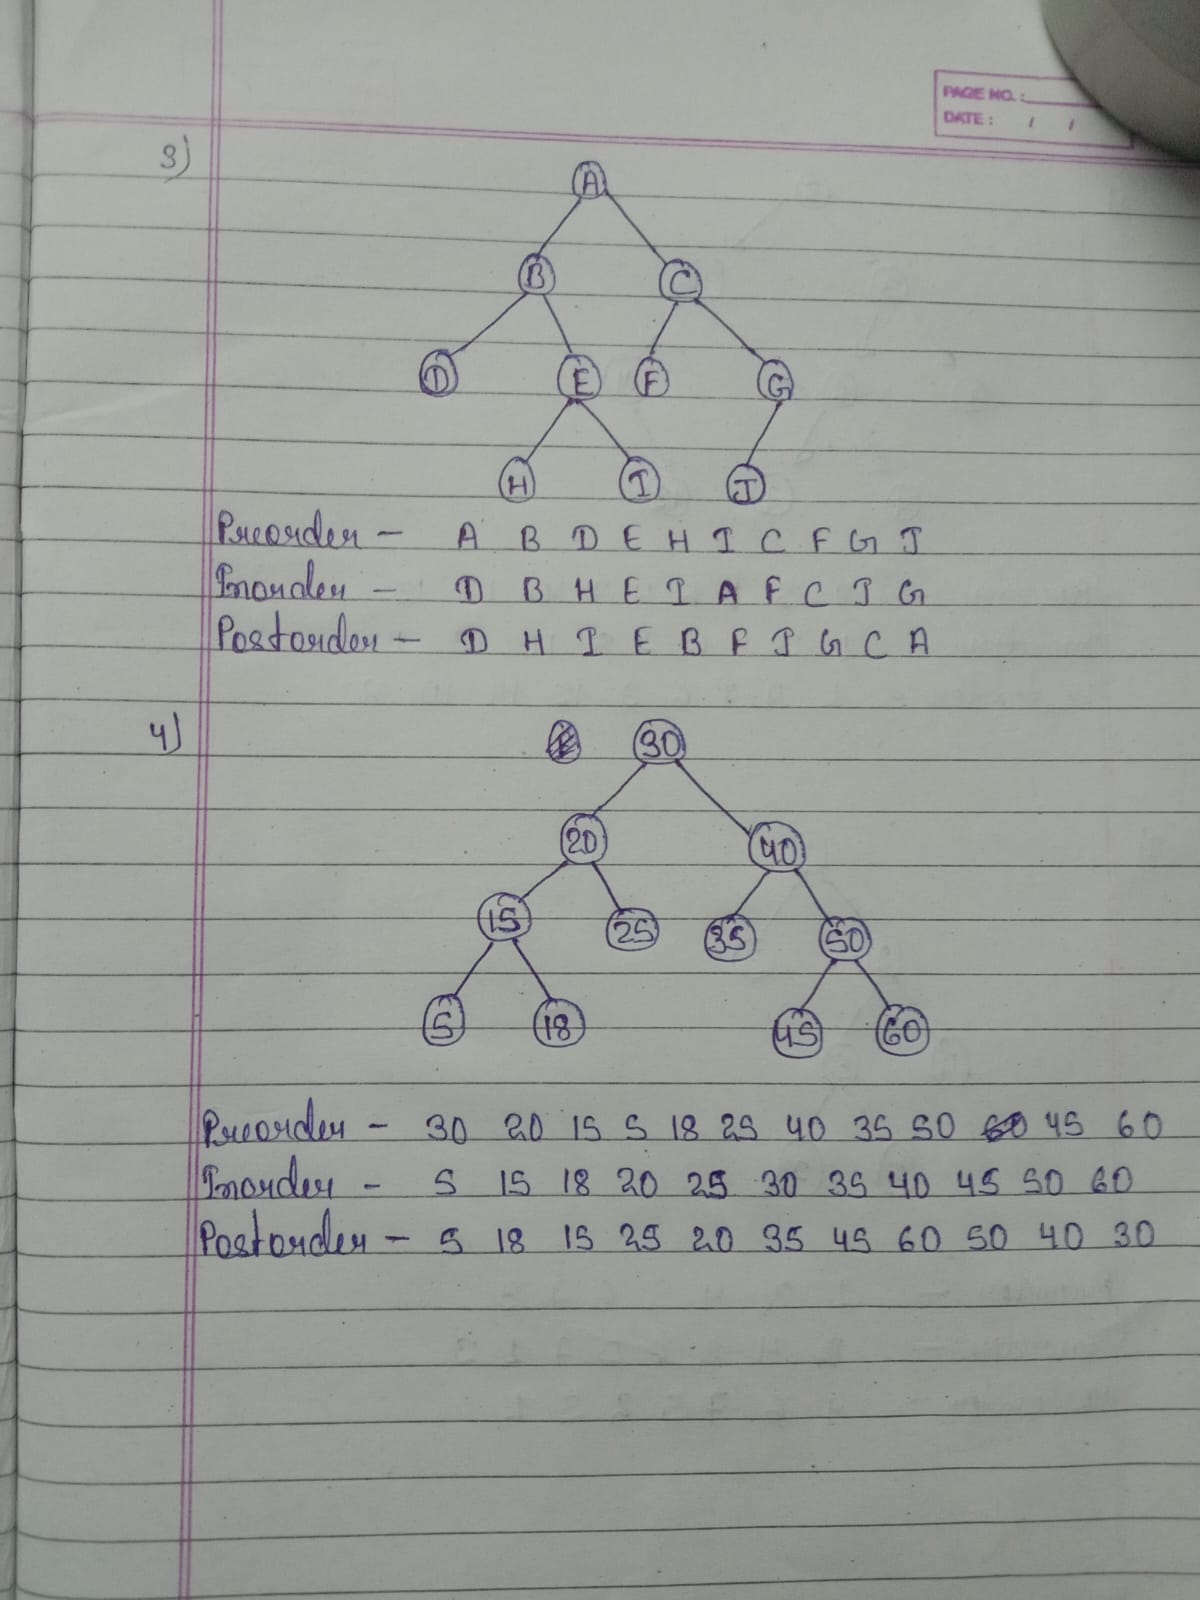 PAGE NO. :
DATE : / /
3)
A
B C
D E F G
H I J
Preorder - A B D E H I C F G J
Inorder - D B H E I A F C J G
Postorder - D H I E B F J G C A
4)
30
20 40
15 25 35 50
5 18 45 60
Preorder - 30 20 15 5 18 25 40 35 50 45 60
Inorder - 5 15 18 20 25 30 35 40 45 50 60
Postorder - 5 18 15 25 20 35 45 60 50 40 30